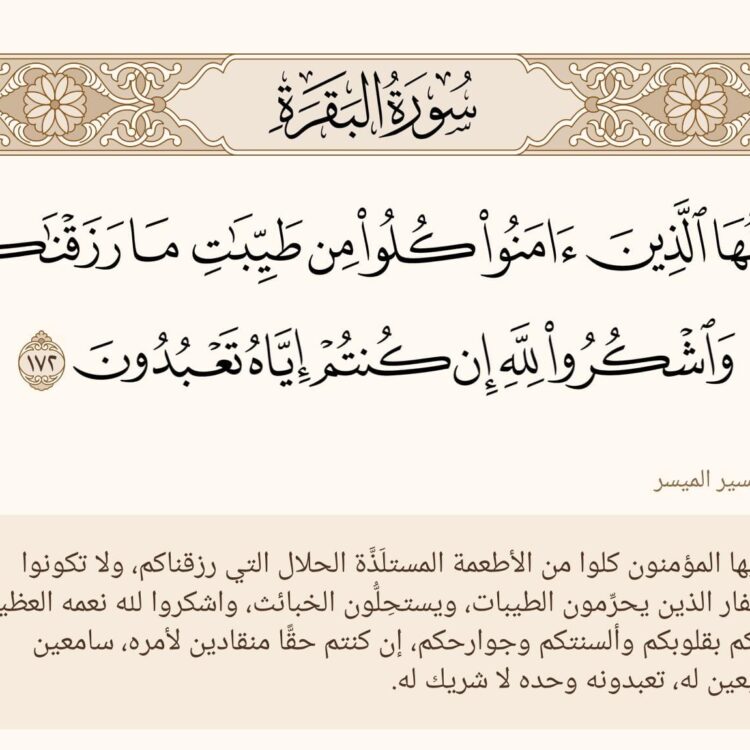 سُورَةُ البَقَرَةِ
ٱلَّذِينَ ءَامَنُوا۟ كُلُوا۟ مِن طَيِّبَـٰتِ مَا رَزَقْنَـٰكـ
وَٱشْكُرُوا۟ لِلَّهِ إِن كُنتُمْ إِيَّاهُ تَعْبُدُونَ ١٧٢
الميسر
المؤمنون كلوا من الأطعمة المستلَذَّة الحلال التي رزقناكم، ولا تكونوا
الذين يحرِّمون الطيبات، ويستحِلُّون الخبائث، واشكروا لله نعمه
بقلوبكم وألسنتكم وجوارحكم، إن كنتم حقًّا منقادين لأمره، سامعين
له، تعبدونه وحده لا شريك له.